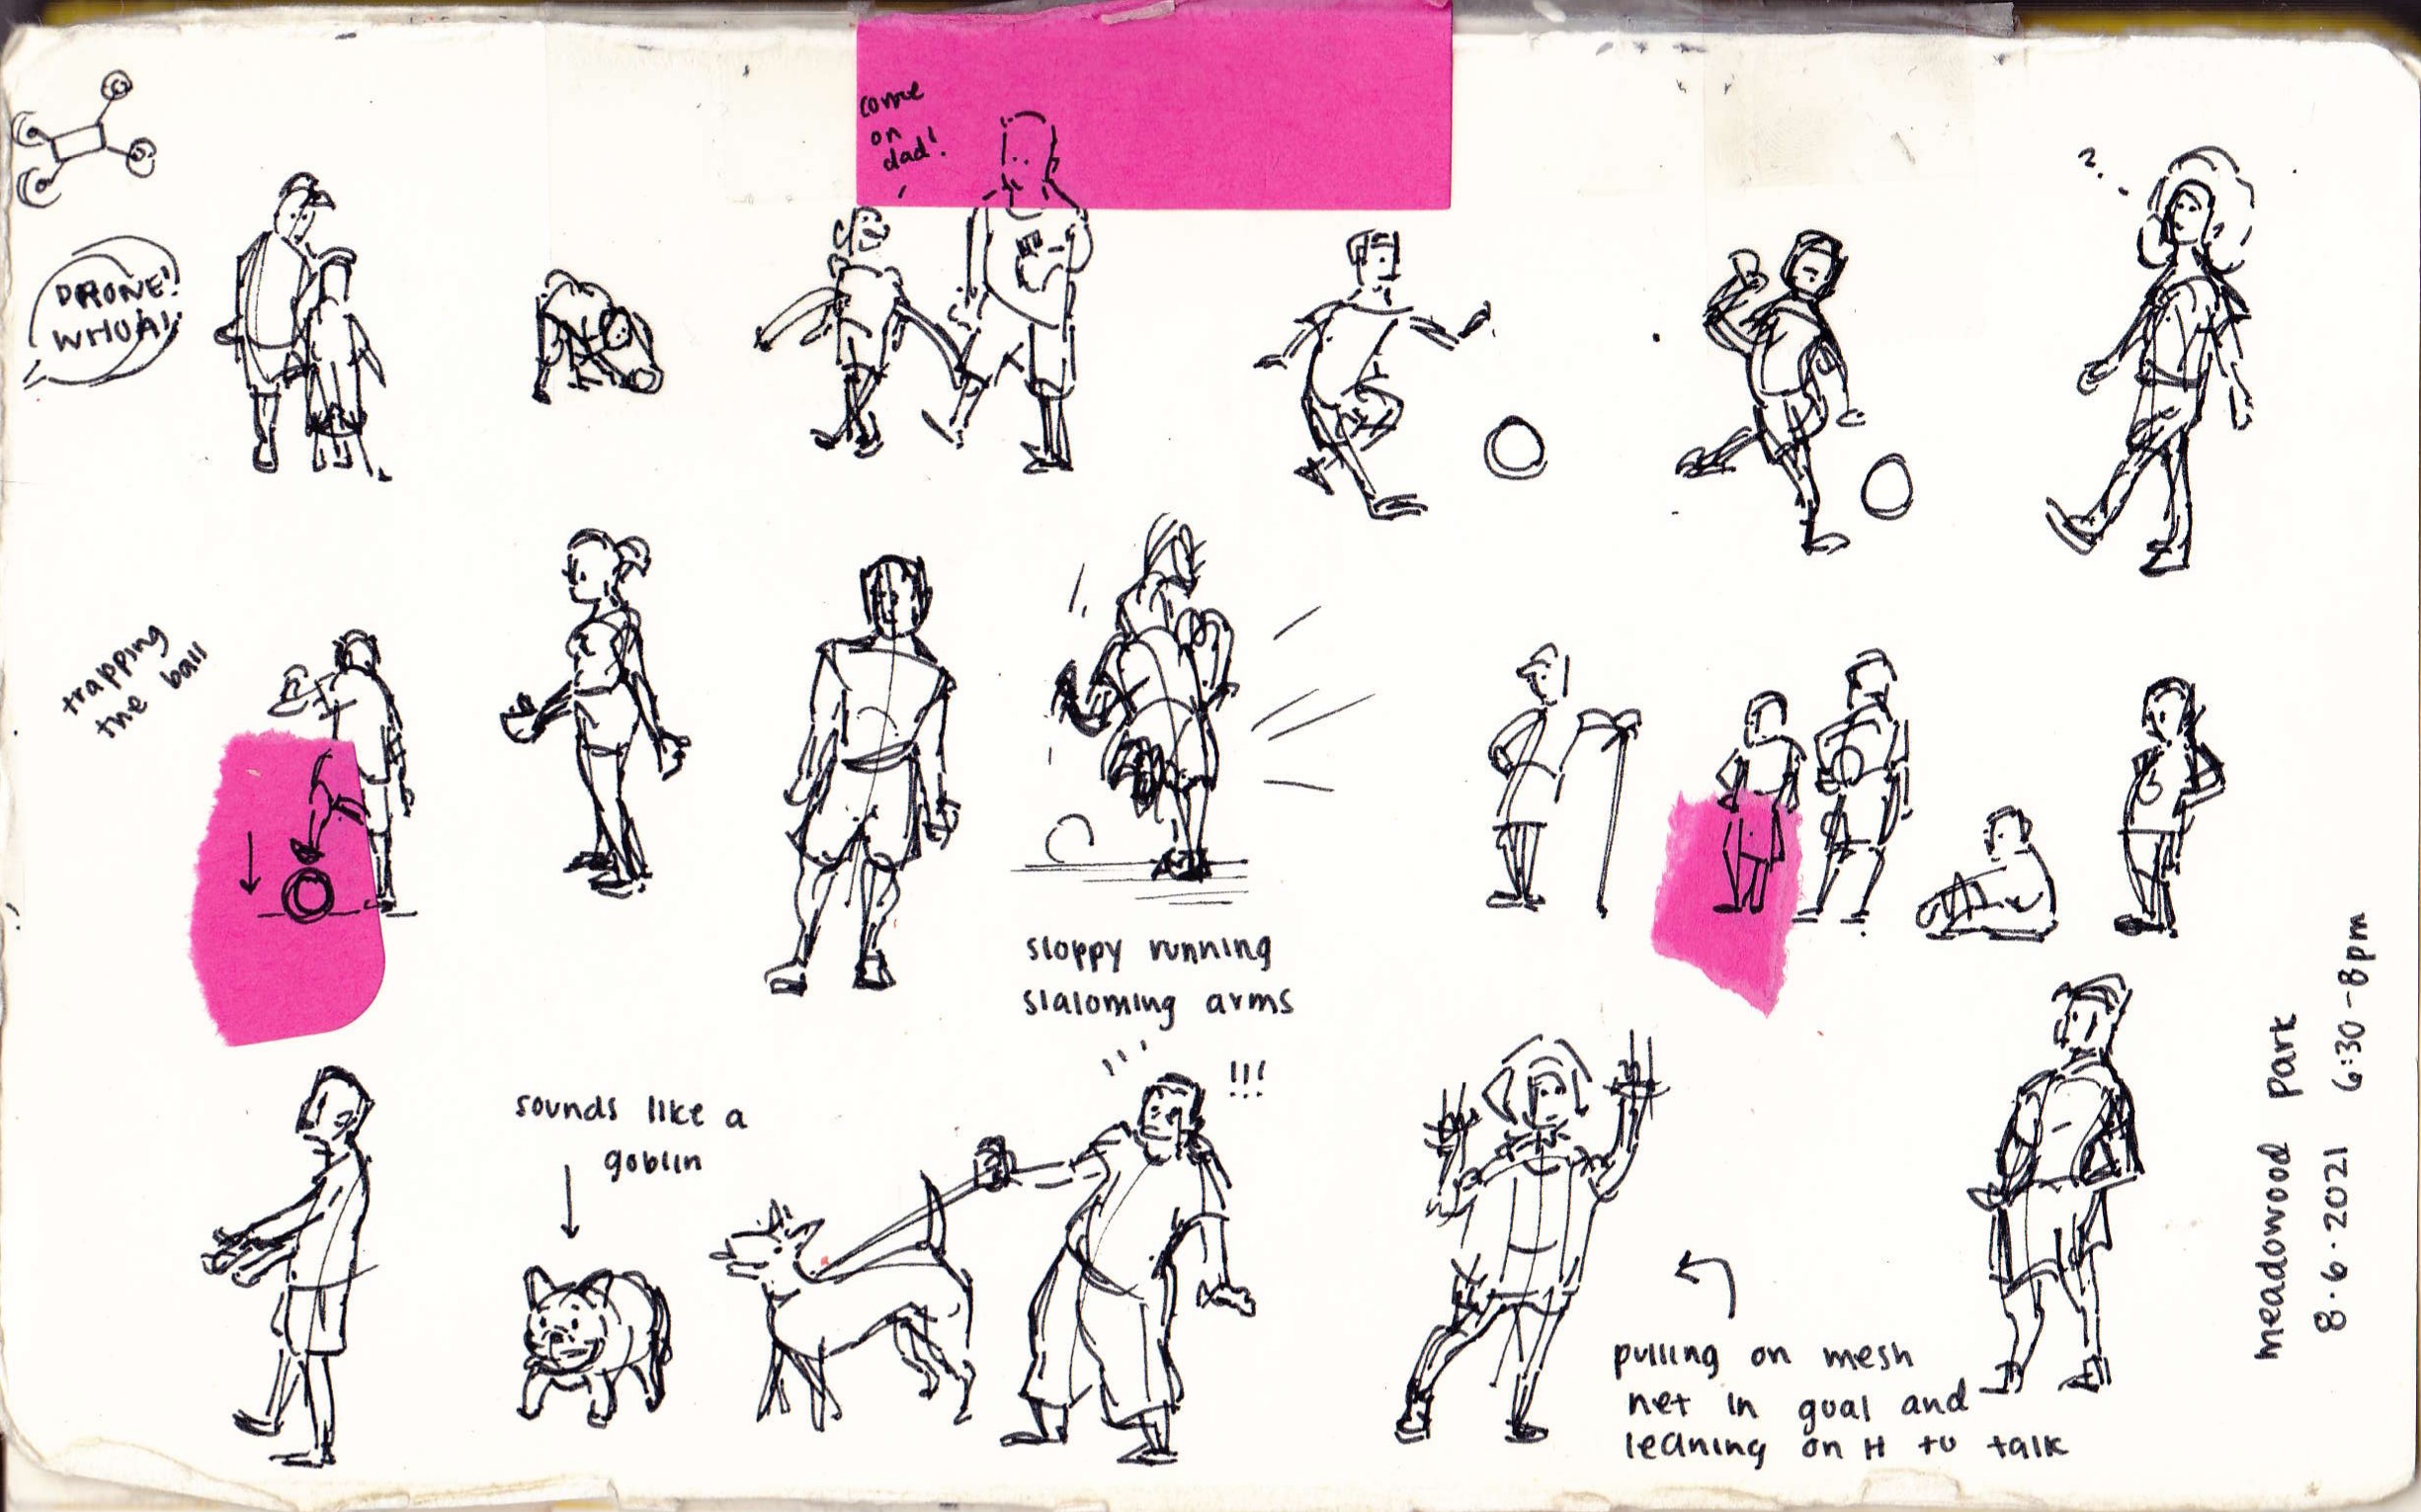 come
on
dad!
DRONE!
WHOA!
?
trapping
the ball
sloppy running
slaloming arms
!!!
sounds like a
goblin
pulling on mesh
net in goal and
leaning on it to talk
meadowood Park
8.6.2021 6:30-8pm